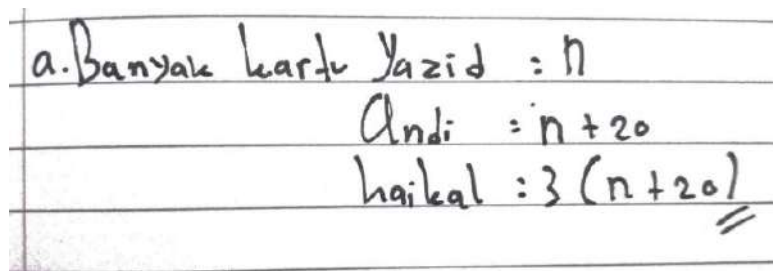 a. Banyak kartu Yazid : n
Andi : n + 20
haikal : 3 (n + 20)